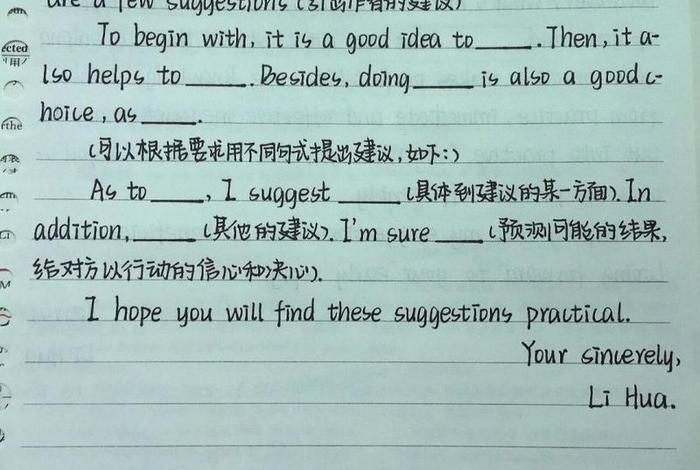 are a few suggestions (引出作者的建议)
To begin with, it is a good idea to____. Then, it a-
lso helps to ____. Besides, doing____ is also a good c-
hoice, as____.
(可以根据要求用不同句式提出建议,如下:)
As to____, I suggest ____ (具体到建议的某一方面). In
addition,____ (其他的建议). I'm sure ____ (预测可能的结果,
给对方以行动的信心和决心).
I hope you will find these suggestions practical.
Your sincerely,
Li Hua.
ected
rthe